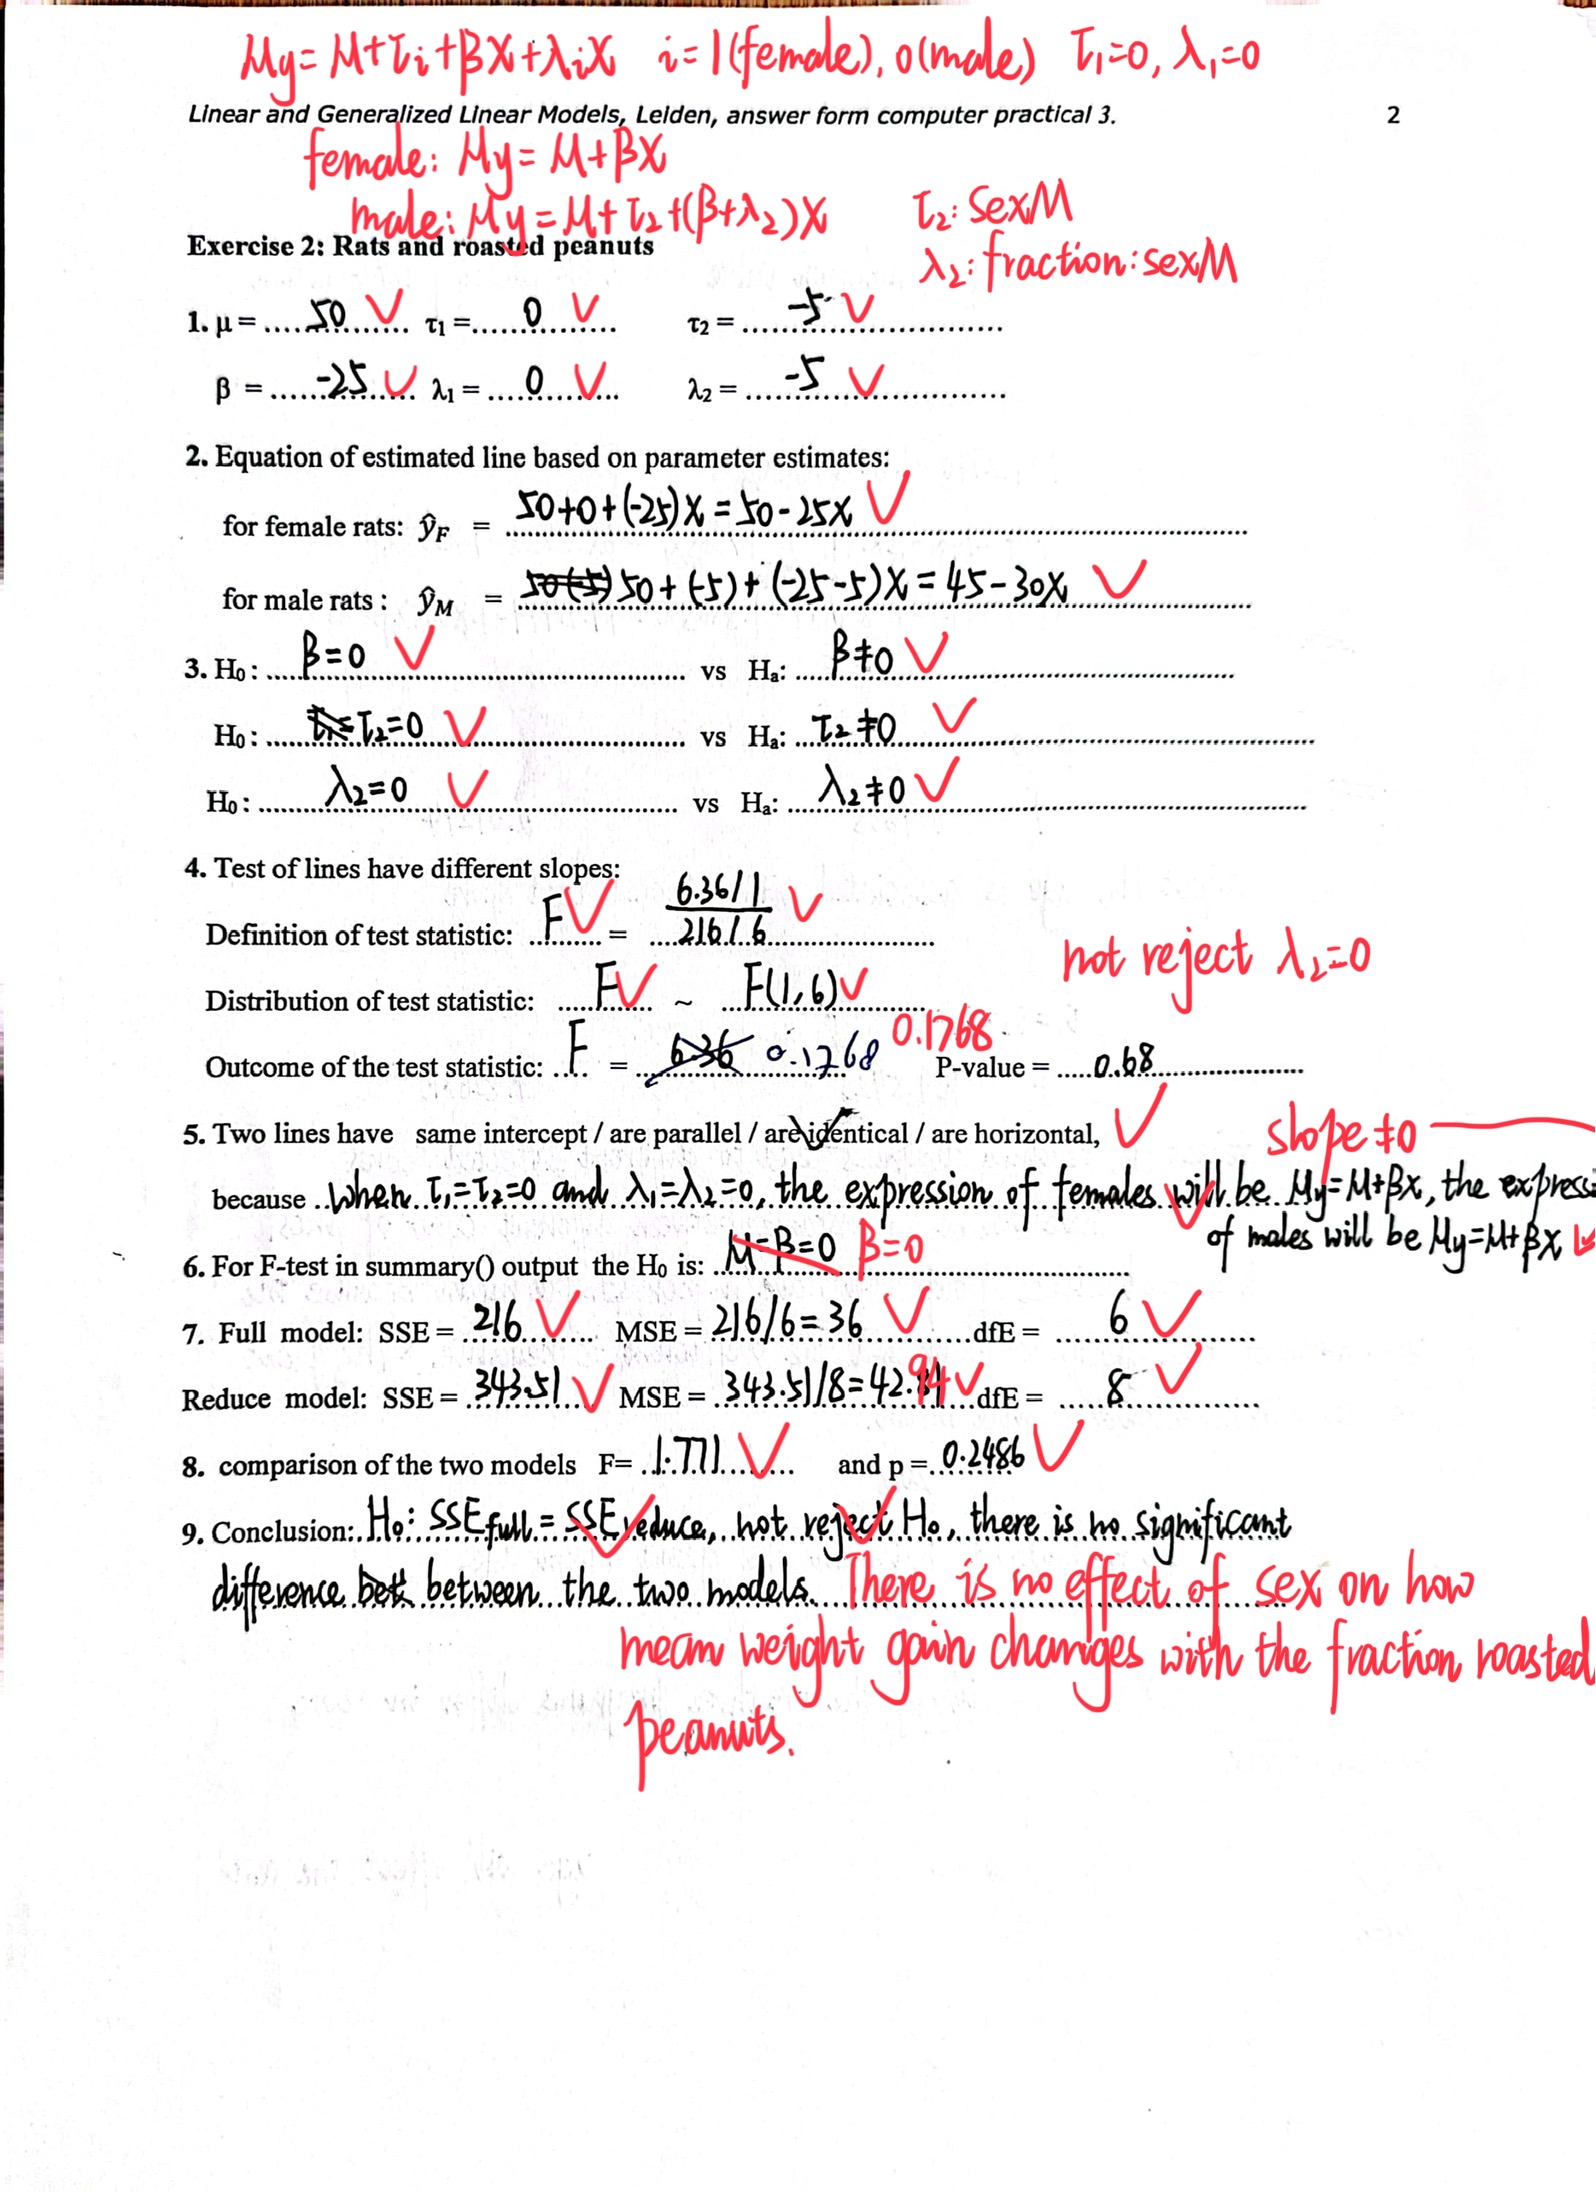 My = M + τi + βX + λiX i = 1(female), 0(male) τ1=0, λ1=0
Linear and Generalized Linear Models, Leiden, answer form computer practical 3. 2
female: My = M + βX
male: My = M + τ2 + (β+λ2)X τ2: SexM
Exercise 2: Rats and roasted peanuts λ2: fraction:sexM
1. μ = ....50.... V τ1 = ....0.... V τ2 = ....-5.... V
β = ....-25.... V λ1 = ....0.... V λ2 = ....-5.... V
2. Equation of estimated line based on parameter estimates:
for female rats: ŷF = 50+0+(-25)X = 50-25X V
for male rats : ŷM = 50+(-5)+(-25-5)X = 45-30X V
3. H0 : β=0 V vs Ha: β≠0 V
H0 : τ2=0 V vs Ha: τ2≠0 V
H0 : λ2=0 V vs Ha: λ2≠0 V
4. Test of lines have different slopes:
Definition of test statistic: F V = 6.36/1 / 216/6 V
not reject λ2=0
Distribution of test statistic: F V ~ F(1,6) V
Outcome of the test statistic: F = 6.36 0.1768 0.1768 P-value = 0.68
5. Two lines have same intercept / are parallel / are identical / are horizontal, V slope≠0
because When τ1=τ2=0 and λ1=λ2=0, the expression of females will be My=M+βX, the express
of males will be My=M+βX
6. For F-test in summary() output the H0 is: M=β=0 β=0
7. Full model: SSE = 216 V MSE = 216/6=36 V dfE = 6 V
Reduce model: SSE = 343.51 V MSE = 343.51/8=42.94 V dfE = 8 V
8. comparison of the two models F= 1.771 V and p = 0.2486 V
9. Conclusion: H0: SSEfull = SSEreduce, not reject H0, there is no significant
difference between the two models. There is no effect of sex on how
mean weight gain changes with the fraction roasted
peanuts.